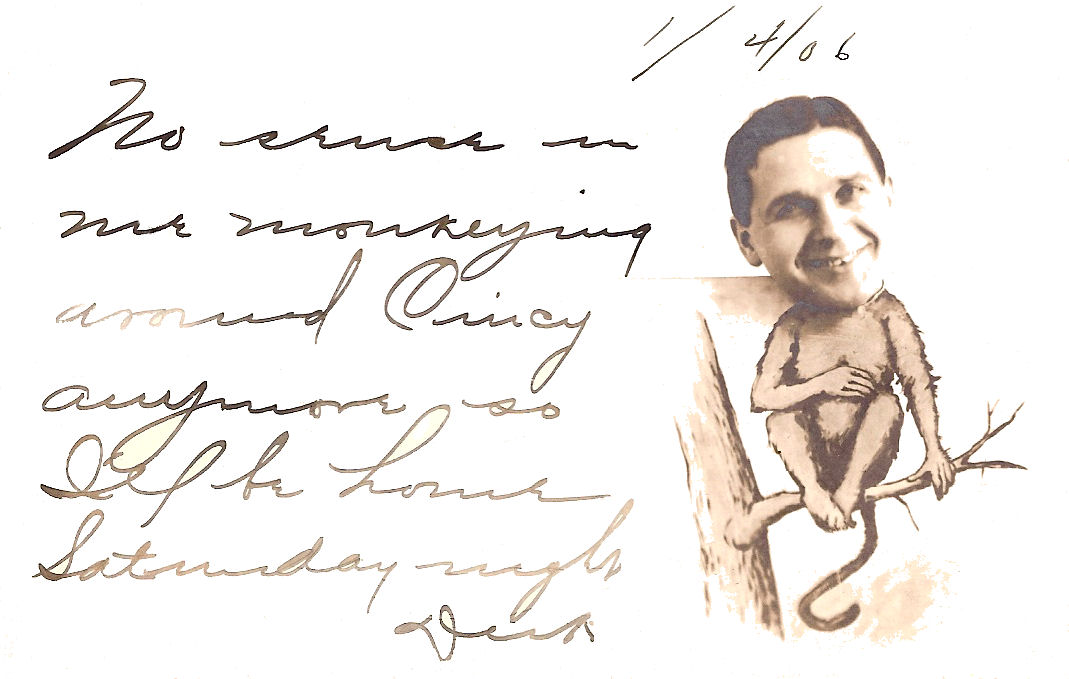 1/4/06
No sense in
me monkeying
around Cincy
anymore so
I'll be home
Saturday night